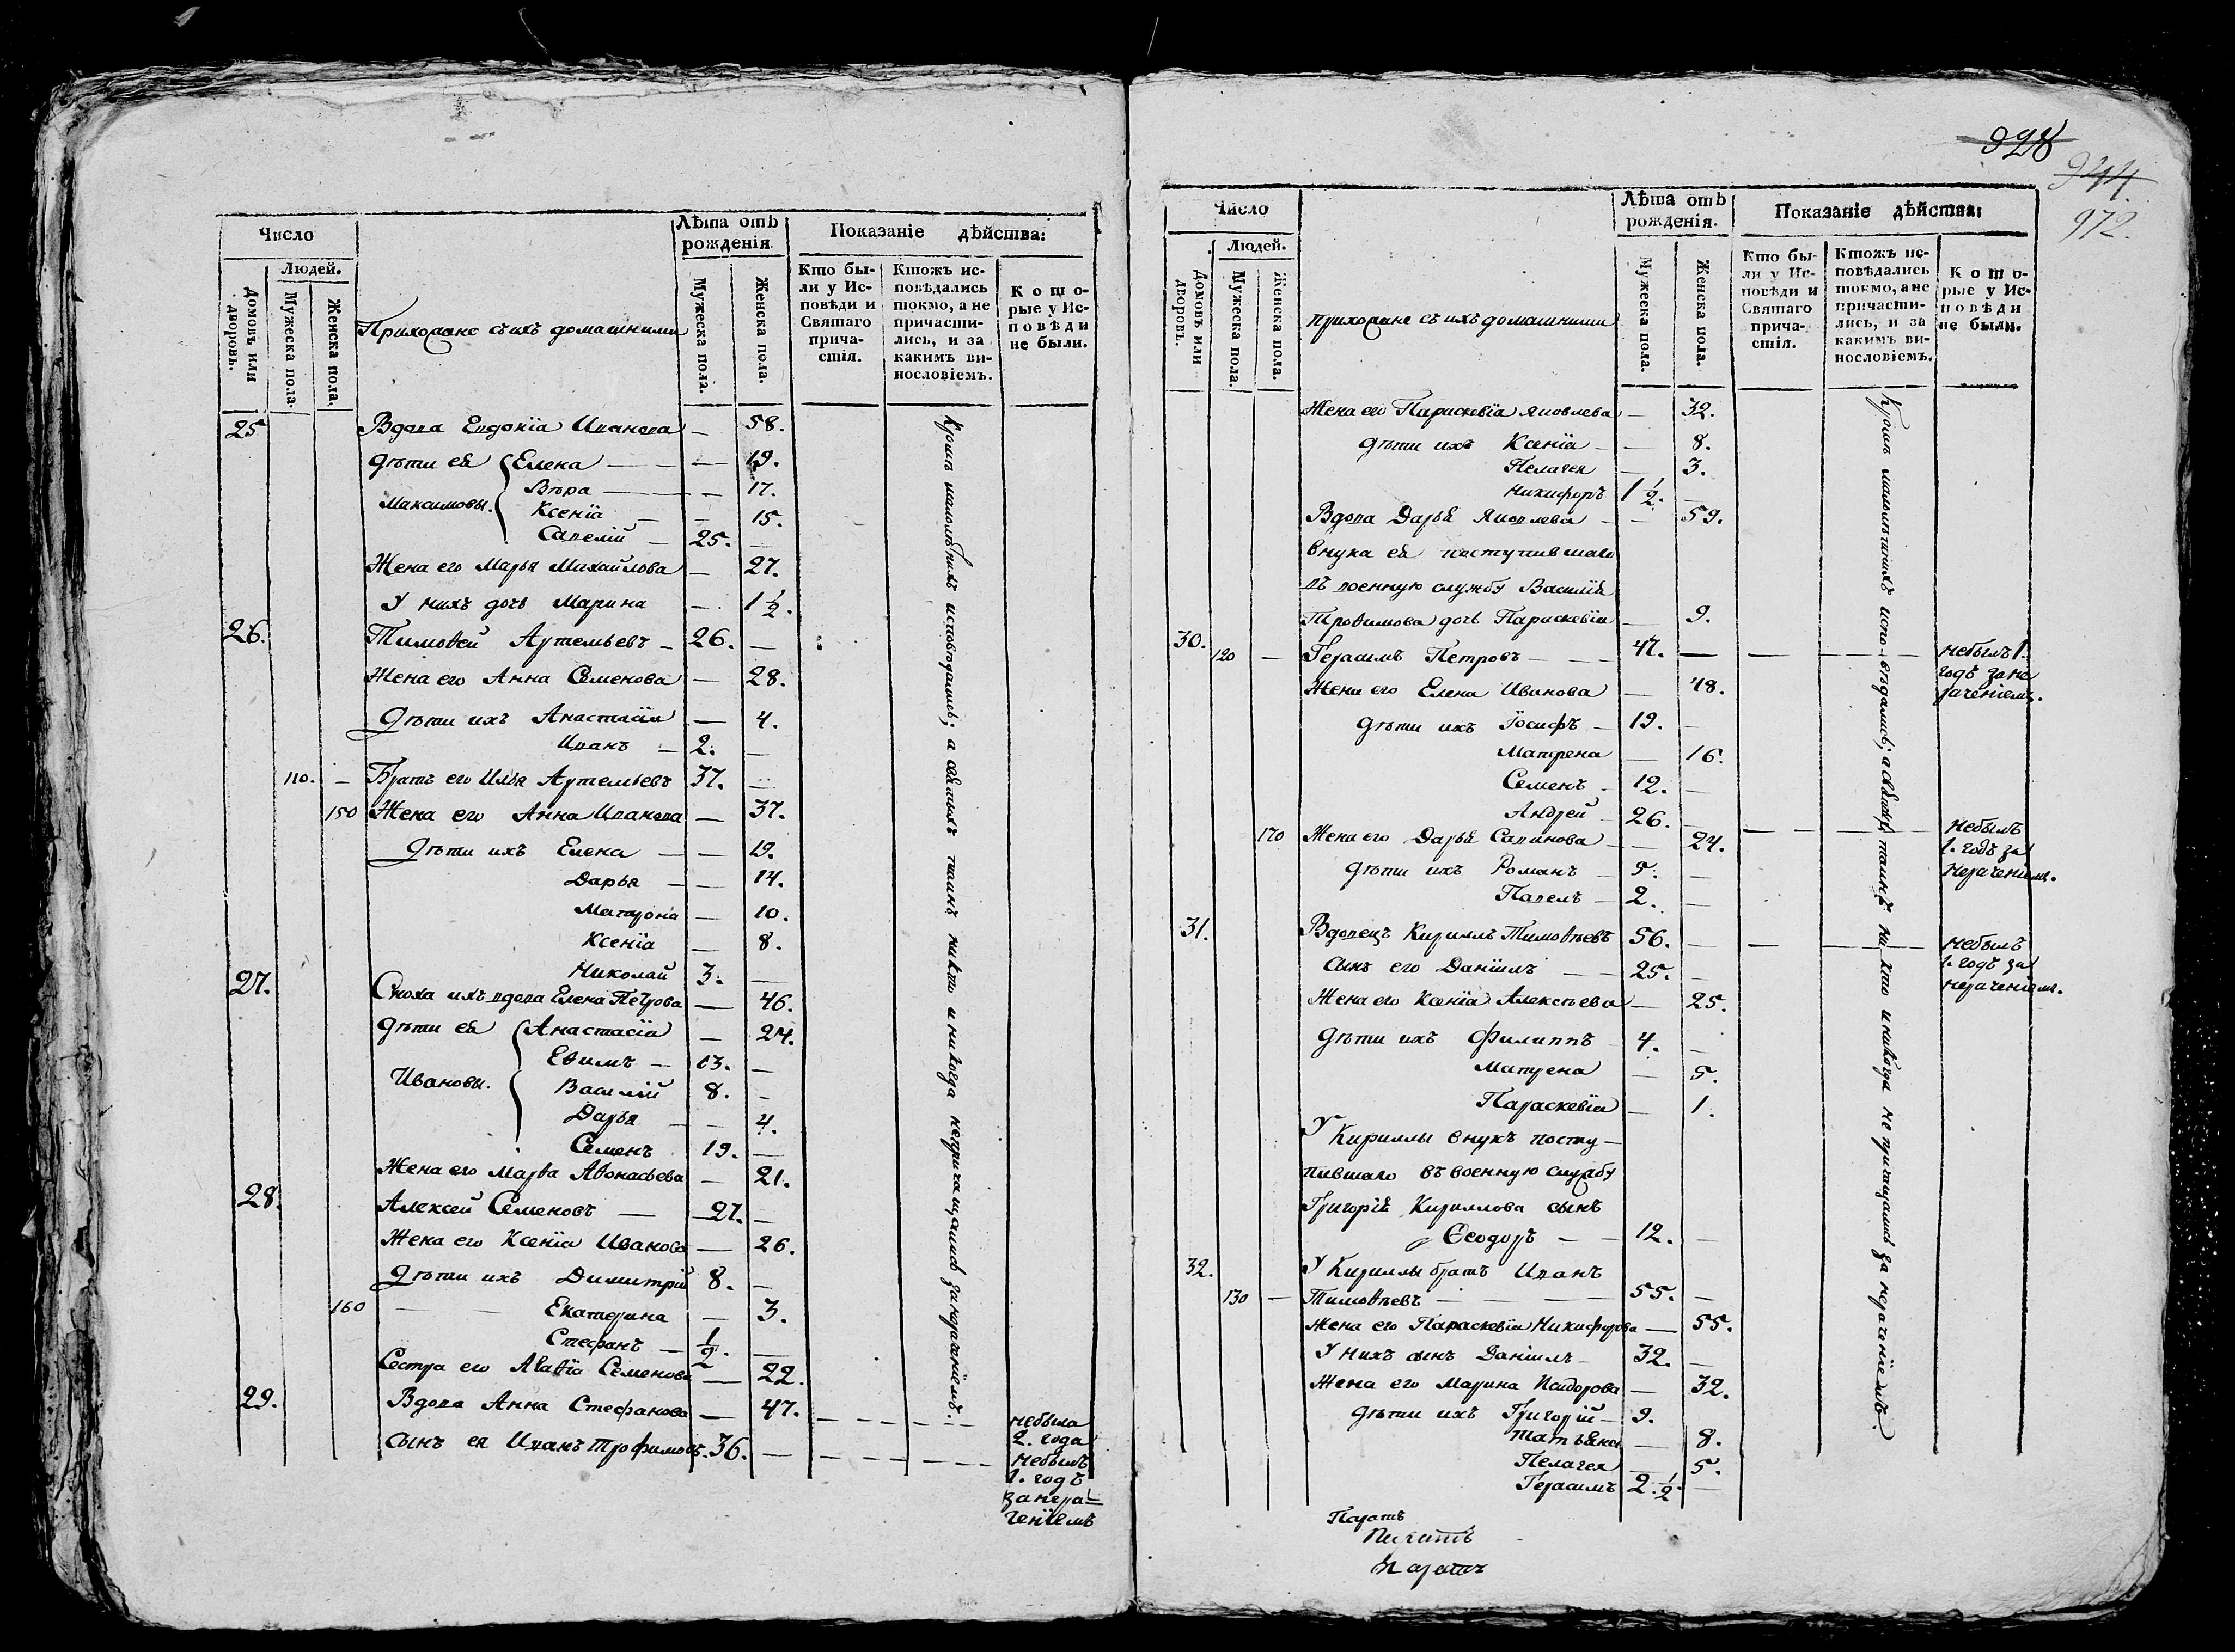 Число
Людей.
Домовъ или дворовъ.
Мужеска пола.
Женска пола.
Прихожане съ ихъ домашними
Лѣта отъ рожденія.
Мужеска пола.
Женска пола.
Показаніе дѣйства:
Кто были у Исповѣди и Святаго причастія.
Ктожъ исповѣдались токмо, а не причастились, и за какимъ винословіемъ.
Которые у Исповѣди не были.
25 Вдова Евдокія Иванова — 58.
дѣти ея Елена — — — 19.
Вѣра — — 17.
Максимовы. Ксенія — — 15.
Савелій — 25. —
Жена его Марья Михайлова — 27.
У нихъ дочь Марина — 1 1/2.
26. Тимоѳей Артемьевъ — 26. —
Жена его Анна Семенова — 28.
Дѣти ихъ Анастасія — 4.
Иванъ — 2. —
110. — Братъ его Илья Артемьевъ 37. —
150 Жена его Анна Иванова — 37.
Дѣти ихъ Елена — — 19.
Дарья — — 14.
Матрона — 10.
Ксенія — 8.
Николай 3. —
27. Сноха ихъ вдова Елена Петрова — 46.
дѣти ея Анастасія — 24.
Евимъ — 13. —
Ивановы. Василій 8. —
Дарья — 4.
Семенъ 19. —
Жена его Марѳа Аѳонасьева — 21.
28. Алексей Семеновъ — 27. —
Жена его Ксенія Иванова — 26.
Дѣти ихъ Димитрій 8. —
160 — — Екатерина — 3.
Стефанъ — 1/2. —
Сестра его Агаѳія Семенова — 22.
29. Вдова Анна Стефанова — 47. — — — — — небыла
2. года
сынъ ея Иванъ Трофимовъ. 36. — — — — — — небылъ
1. годъ
за нера-
ченіемъ
Кромѣ малолѣтнихъ исповѣдались; а святыхъ таинъ никто и никогда непричащались за нераченіемъ.
928
944.
972.
Число
Людей.
Домовъ или дворовъ.
Мужеска пола.
Женска пола.
Прихожане съ ихъ домашними
Лѣта отъ рожденія.
Мужеска пола.
Женска пола.
Показаніе дѣйства:
Кто были у Исповѣди и Святаго причастія.
Ктожъ исповѣдались токмо, а не причастились, и за какимъ винословіемъ.
Которые у Исповѣди не были.
Жена его Парискевія Яковлева — 32.
дѣти ихъ Ксенія — — 8.
Пелагея — 3.
Никифоръ 1 1/2. —
Вдова Дарья Яковлева — — 59.
внука ея поступившаго
въ военную службу Василія
Троѳимова дочь Парискевія — 9.
30. 120 — Герасимъ Петровъ — — — 47. — — — — — небылъ 1.
годъ за не
раченіемъ.
Жена его Елена Иванова — 48.
дѣти ихъ Іосифъ — 19. —
Матрена — 16.
Семенъ — 12. —
Андрей — 26. — — — — — небылъ
1. годъ за
нераченіемъ.
170 Жена его Дарья Савинова — — 24.
дѣти ихъ Романъ — 5. —
Павелъ — 2. —
31. Вдовецъ Кириллъ Тимоѳѣевъ 56. — — — — — небылъ
1. годъ за
нераченіемъ.
сынъ его Даніилъ — — 25. —
Жена его Ксенія Алексѣева — 25.
дѣти ихъ Филиппъ — 4. —
Матрена — 5.
Параскевія — 1.
У Кириллы внукъ посту-
пившаго въ военную службу
Григорій Кириллова сынъ
Ѳеодоръ — — 12. —
32. У Кириллы братъ Иванъ
130 — Тимоѳѣевъ — — — — 55. —
Жена его Параскевія Никифорова — 55.
У нихъ сынъ Даніилъ — 32. —
Жена его Марина Исидорова — 32.
дѣти ихъ Григорій — 9.
Татьяна — 8.
Пелагея — 5.
Герасимъ 2. 1/2. —
Кромѣ малолѣтнихъ исповѣдались; а святыхъ таинъ ни кто и никогда не причащались за нераченіемъ.